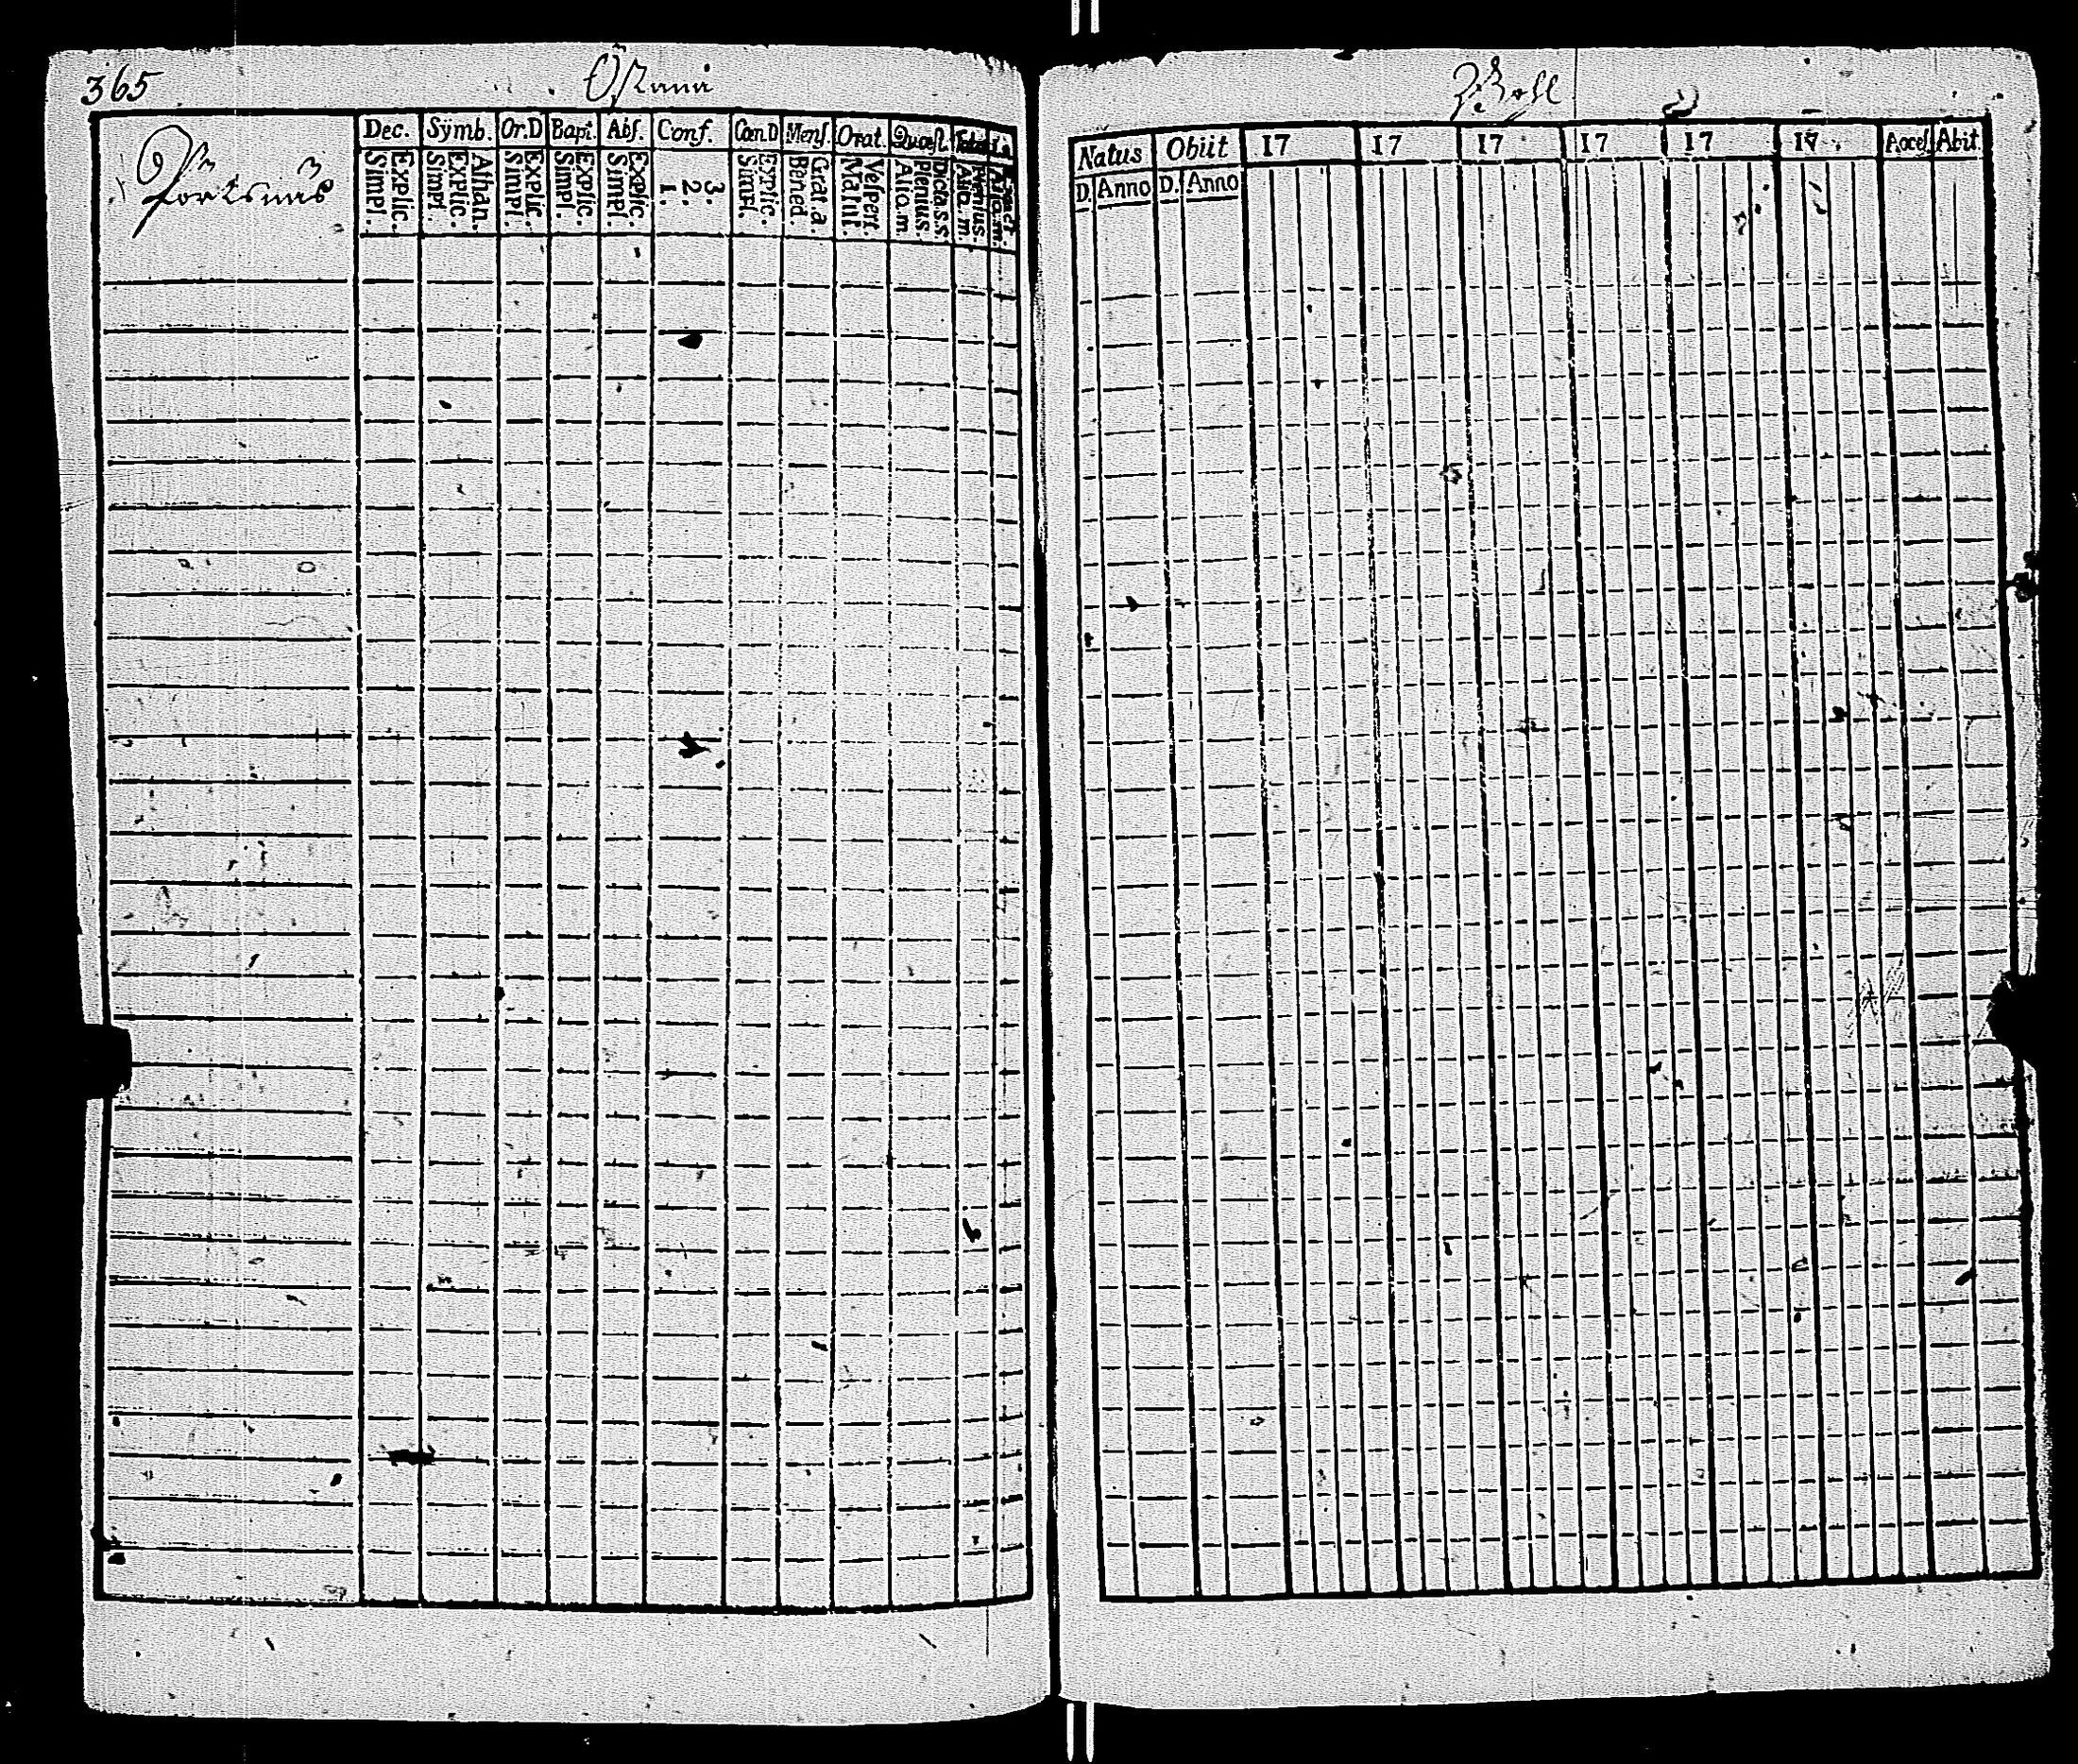 365
Dec. Sÿmb. Or.D Bapt. Abſ. Conf. Cœn.D Menſ. Orat. Quæſt.
Explic. Simpl. Athan. Explic. Simpl. Explic. Simpl. Explic. Simpl. Explic. Simpl. 3. 2. 1. Explic. Simpl. Grat.a. Bened. Veſpert. Matut. Dicta.s.s. Plenius. Aliq.m. Plenius. Aliq.m
Natus Obiit 17 17 17 17 17 17 Acceſ Abit
D. Anno D. Anno